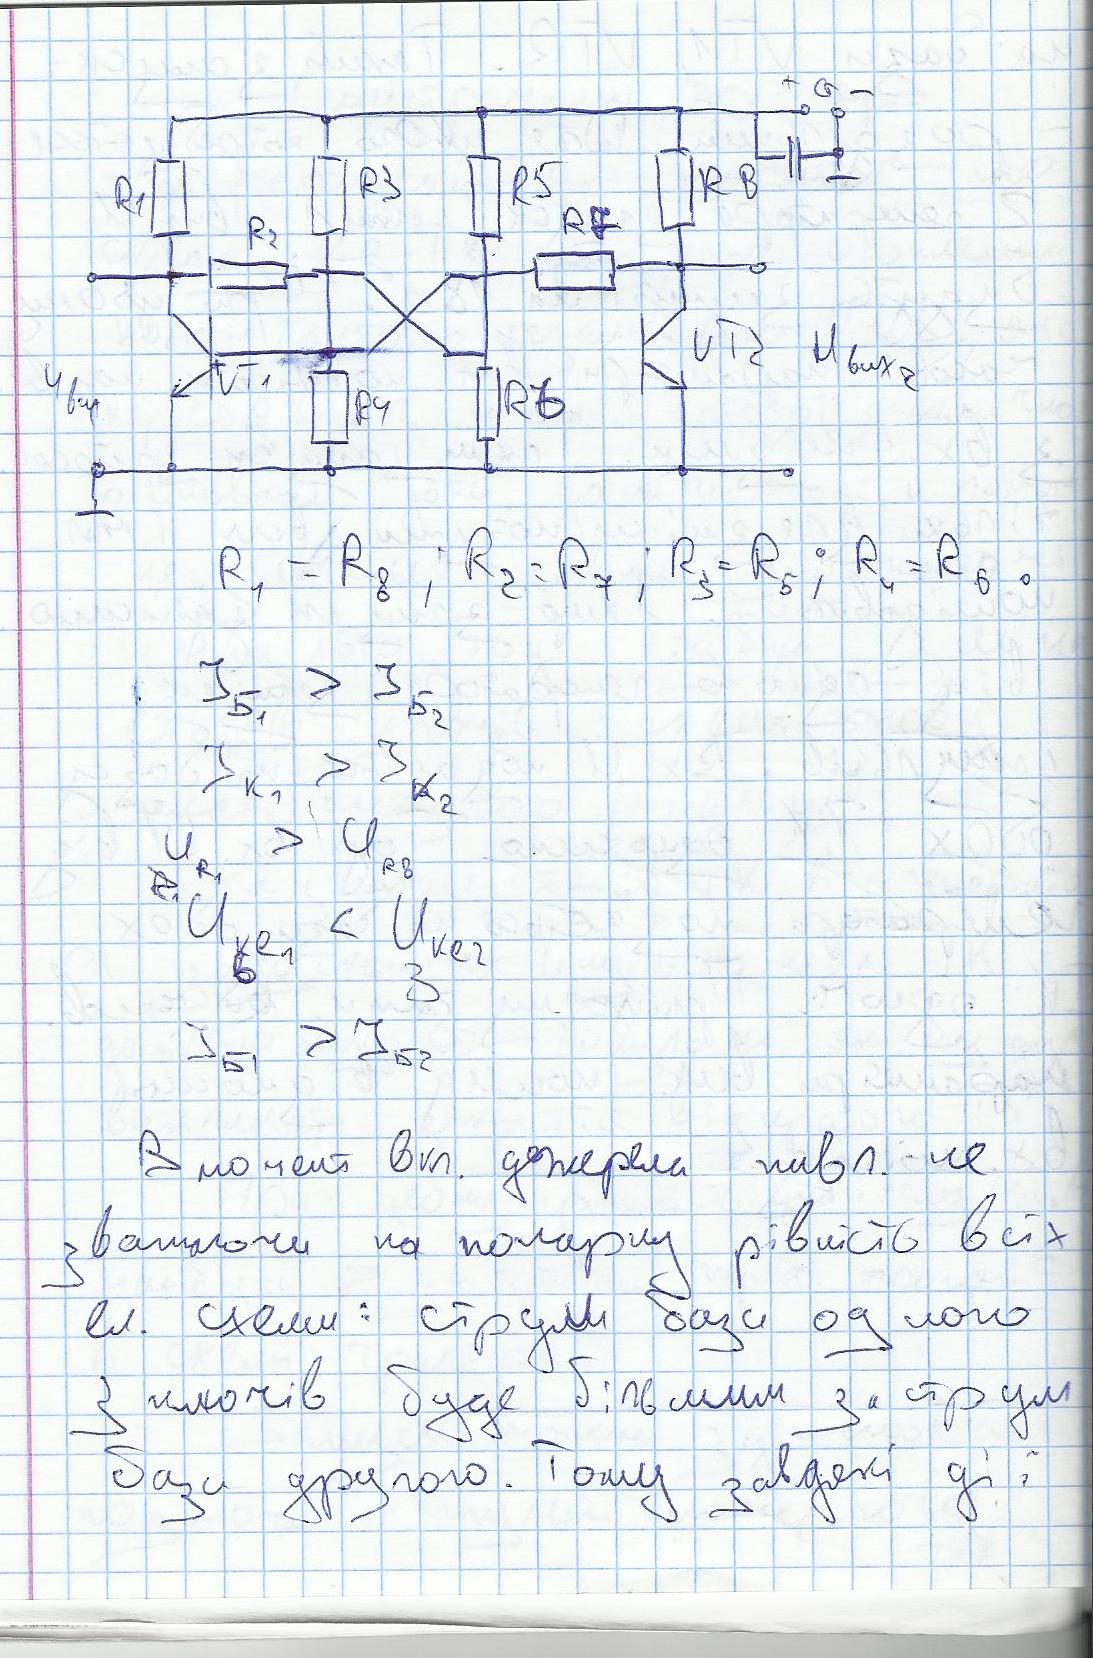 + −
R1 R3 R5 R8
R2 R7
VT1 VT2
Uвих2
R4 R6
R1 = R8 ; R2 = R7 ; R3 = R5 ; R4 = R6 .
IБ1 > IБ2
IК1 > IК2
UR1 > UR8
Uке1 < Uке2
IБ1 > IБ2
В момент вкл. джерела живл. не
зважаючи на попарну рівність всіх
ел. схеми: струм бази одного
з ключів буде більшим за струм
бази другого. Тому завдяки дії